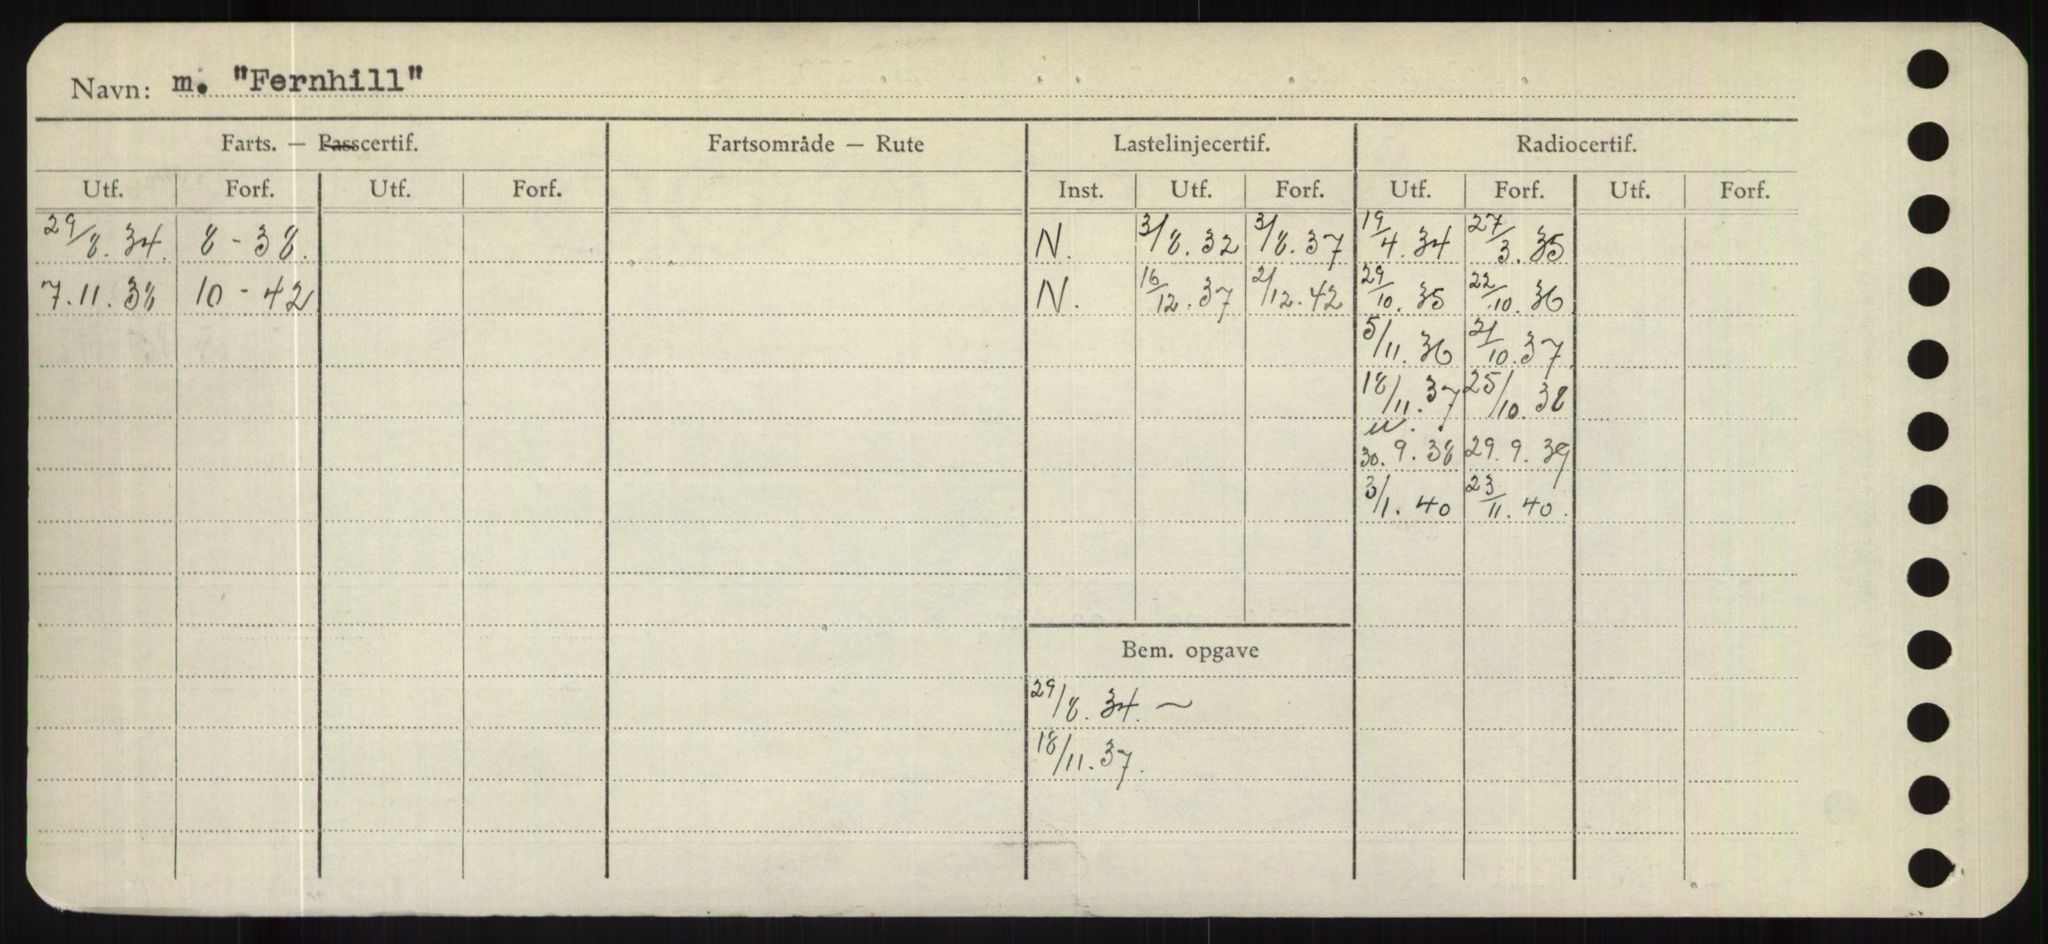 Navn: m. "Fernhill"
Farts. — Passcertif. Fartsområde — Rute Lastelinjecertif. Radiocertif.
Utf. Forf. Utf. Forf. Inst. Utf. Forf. Utf. Forf. Utf. Forf.
29/8. 34. 8 - 38. N. 3/8. 32 3/8. 37 19/4. 34 27/3. 35
7. 11. 38 10 - 42 N. 16/12. 37 2/12. 42 29/10. 35 22/10. 36
5/11. 36 21/10. 37
18/11. 37 25/10. 38
30. 9. 38 29. 9. 39
3/1. 40 23/11. 40.
Bem. opgave
29/8. 34. ~
18/11. 37.